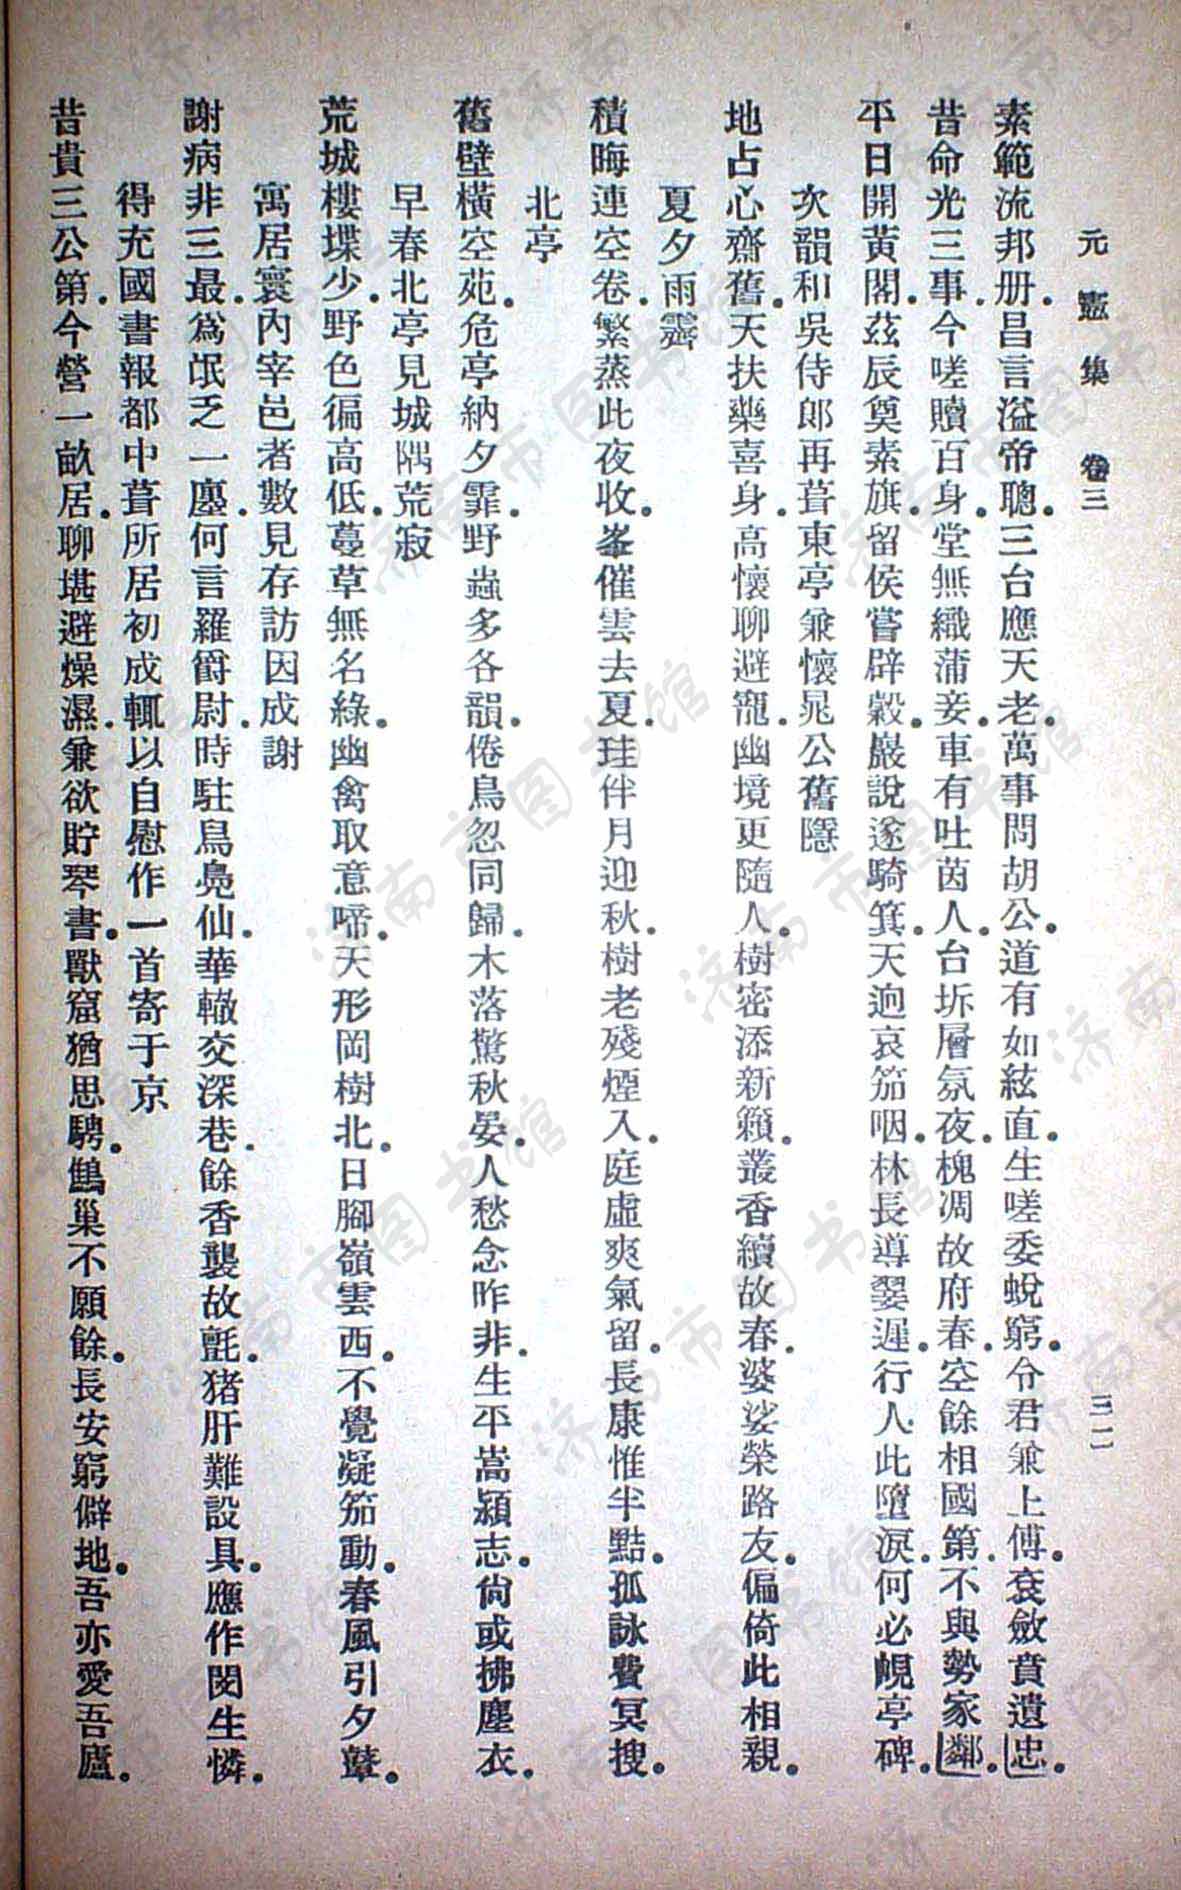 元憲集 卷三 三二
素範流邦册.昌言溢帝聰.三台應天老.萬事問胡公.道有如絃直.生嗟委蛻窮.令君兼上傅.袞斂賁遺忠.
昔命光三事.今嗟贖百身.堂無織蒲妾.車有吐茵人.台坼層氛夜.槐凋故府春.空餘相國第.不與勢家鄰.
平日開黃閣.茲辰奠素旗.留侯嘗辟穀.巖說遂騎箕.天迥哀笳咽.林長導翣遲.行人此墮淚.何必峴亭碑.
次韻和吳侍郎再葺東亭兼懷晁公舊隱
地占心齋舊.天扶藥喜身.高懷聊避寵.幽境更隨人.樹密添新籟.叢香續故春.婆娑榮路友.偏倚此相親.
夏夕雨霽
積晦連空卷.繁蒸此夜收.峯催雲去夏.珪伴月迎秋.樹老殘煙入.庭虛爽氣留.長康惟半點.孤詠費冥搜.
北亭
舊壁橫空苑.危亭納夕霏.野蟲多各韻.倦鳥忽同歸.木落驚秋晏.人愁念昨非.生平嵩潁志.尙或拂塵衣.
早春北亭見城隅荒寂
荒城樓堞少.野色徧高低.蔓草無名綠.幽禽取意啼.天形岡樹北.日腳嶺雲西.不覺凝笳動.春風引夕鼙.
寓居寰內宰邑者數見存訪因成謝
謝病非三最.爲氓乏一廛.何言羅爵尉.時駐鳥鳧仙.華轍交深巷.餘香襲故氈.猪肝難設具.應作閔生憐.
得充國書報都中葺所居初成輒以自慰作一首寄于京
昔貴三公第.今營一畝居.聊堪避燥濕.兼欲貯琴書.獸窟猶思騁.鷦巢不願餘.長安窮僻地.吾亦愛吾廬.
济南市图书馆